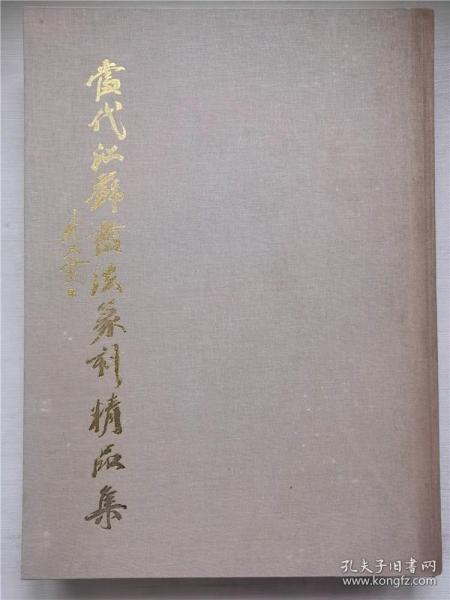 當代江蘇書法篆刻精品集
孔夫子旧书网
www.kongfz.com